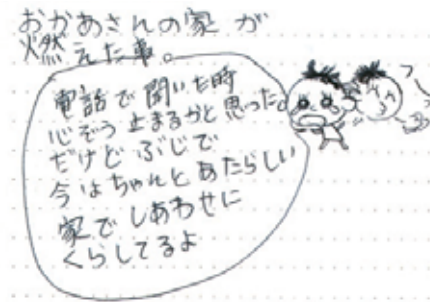 おかあさんの家が
燃えた事。
電話で聞いた時
心ぞう止まるかと思った。
だけどぶじで
今はちゃんとあたらしい
家でしあわせに
くらしてるよ